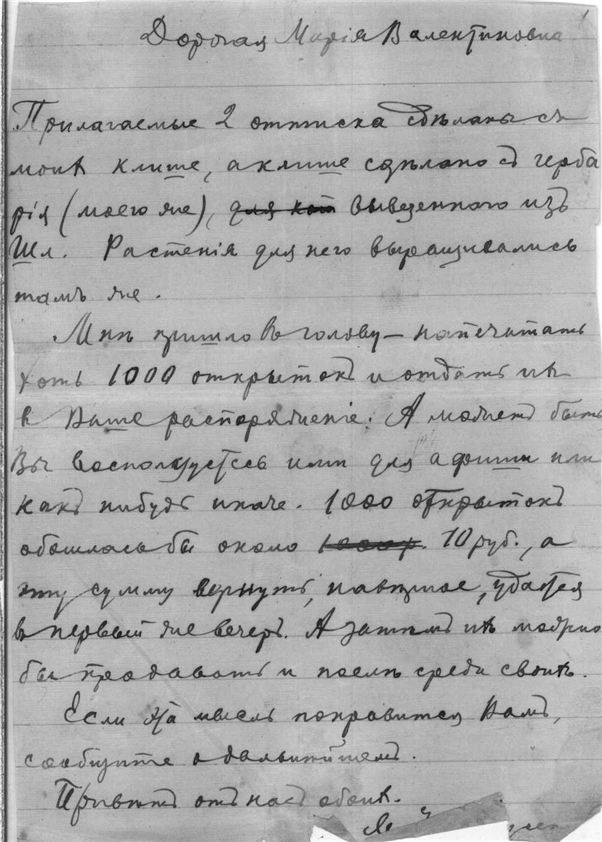 Дорогая Марія Валентиновна
Прилагаемые 2 оттиска сдѣланы съ
моих клише, а клише сдѣлано съ герба
рія (моего же), для кот вывезеннаго изъ
Шл. Растенія для него выращивались
тамъ же.
Мнѣ пришло въ голову — напечатать
хоть 1000 открытокъ и отдать их
в Ваше распоряженіе. А может быть
Вы воспользуетесь ими для афиши или
какъ нибудь иначе. 1000 открытокъ
обошлась бы около 1000р. 10 руб., а
эту сумму вернуть, навѣрное, удастся
в первый же вечеръ. А затѣмъ их можно
бы продавать и послѣ среди своих.
Если эта мысль понравится Вамъ,
сообщите о дальнѣйшемъ.
Привѣтъ отъ нас обоих.